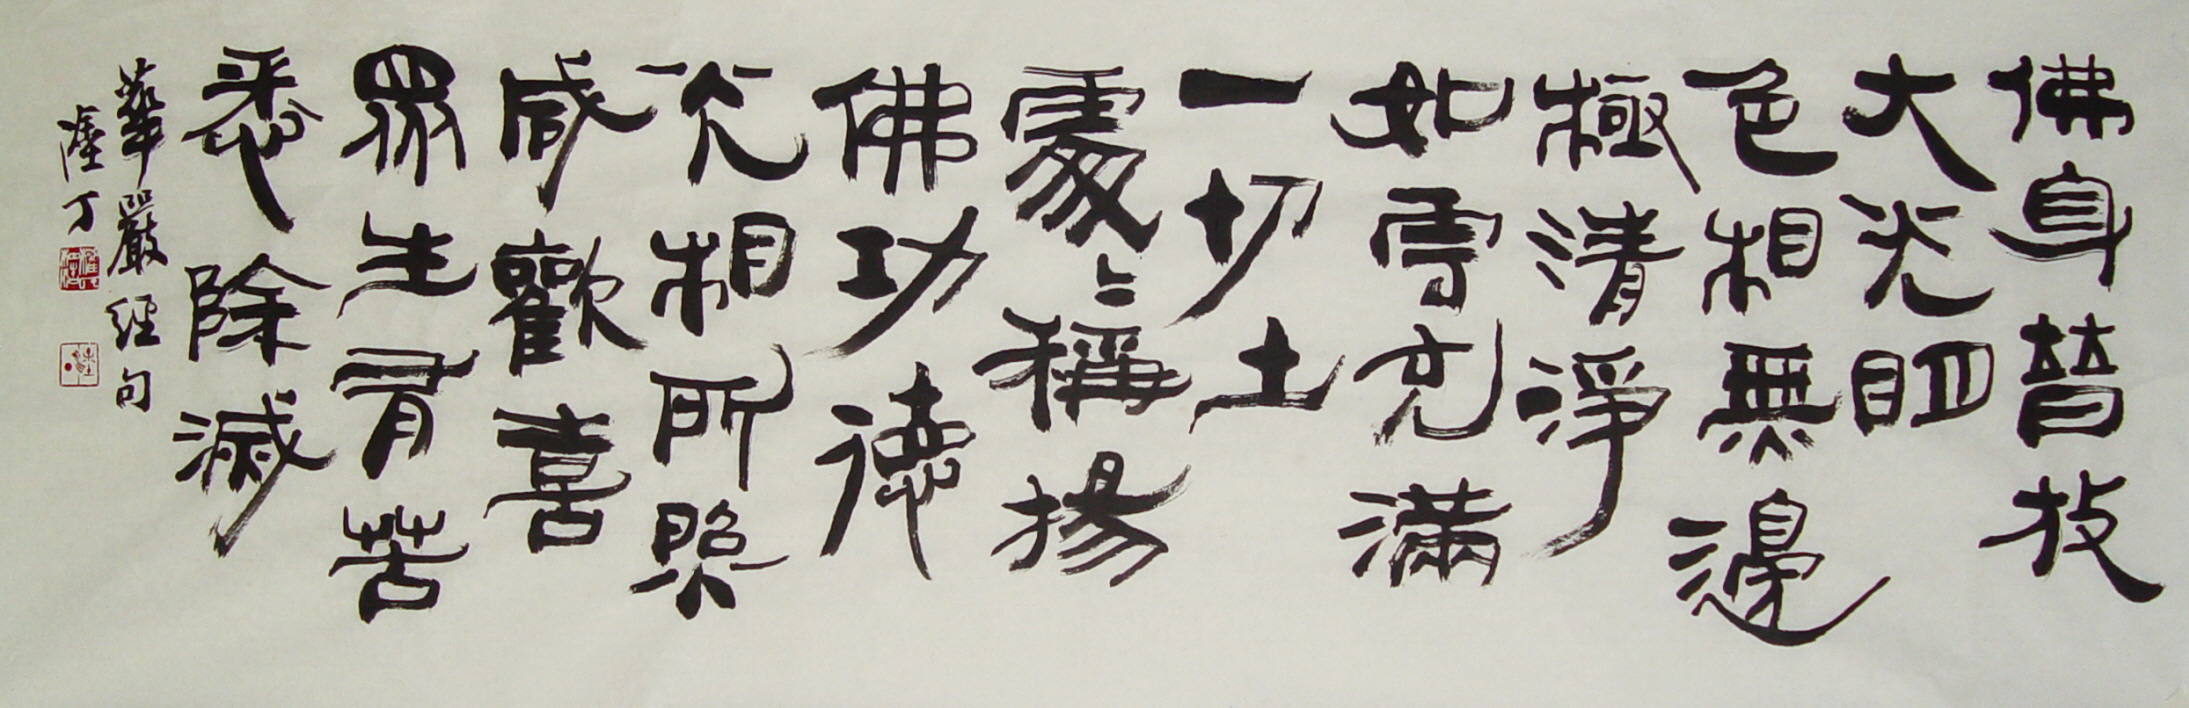 佛身普放
大光眀
色相無邊
極清淨
如雲充滿
一切土
處〻稱揚
佛功德
光相所照
咸歡喜
眾生有苦
悉除滅
華嚴經句
丁